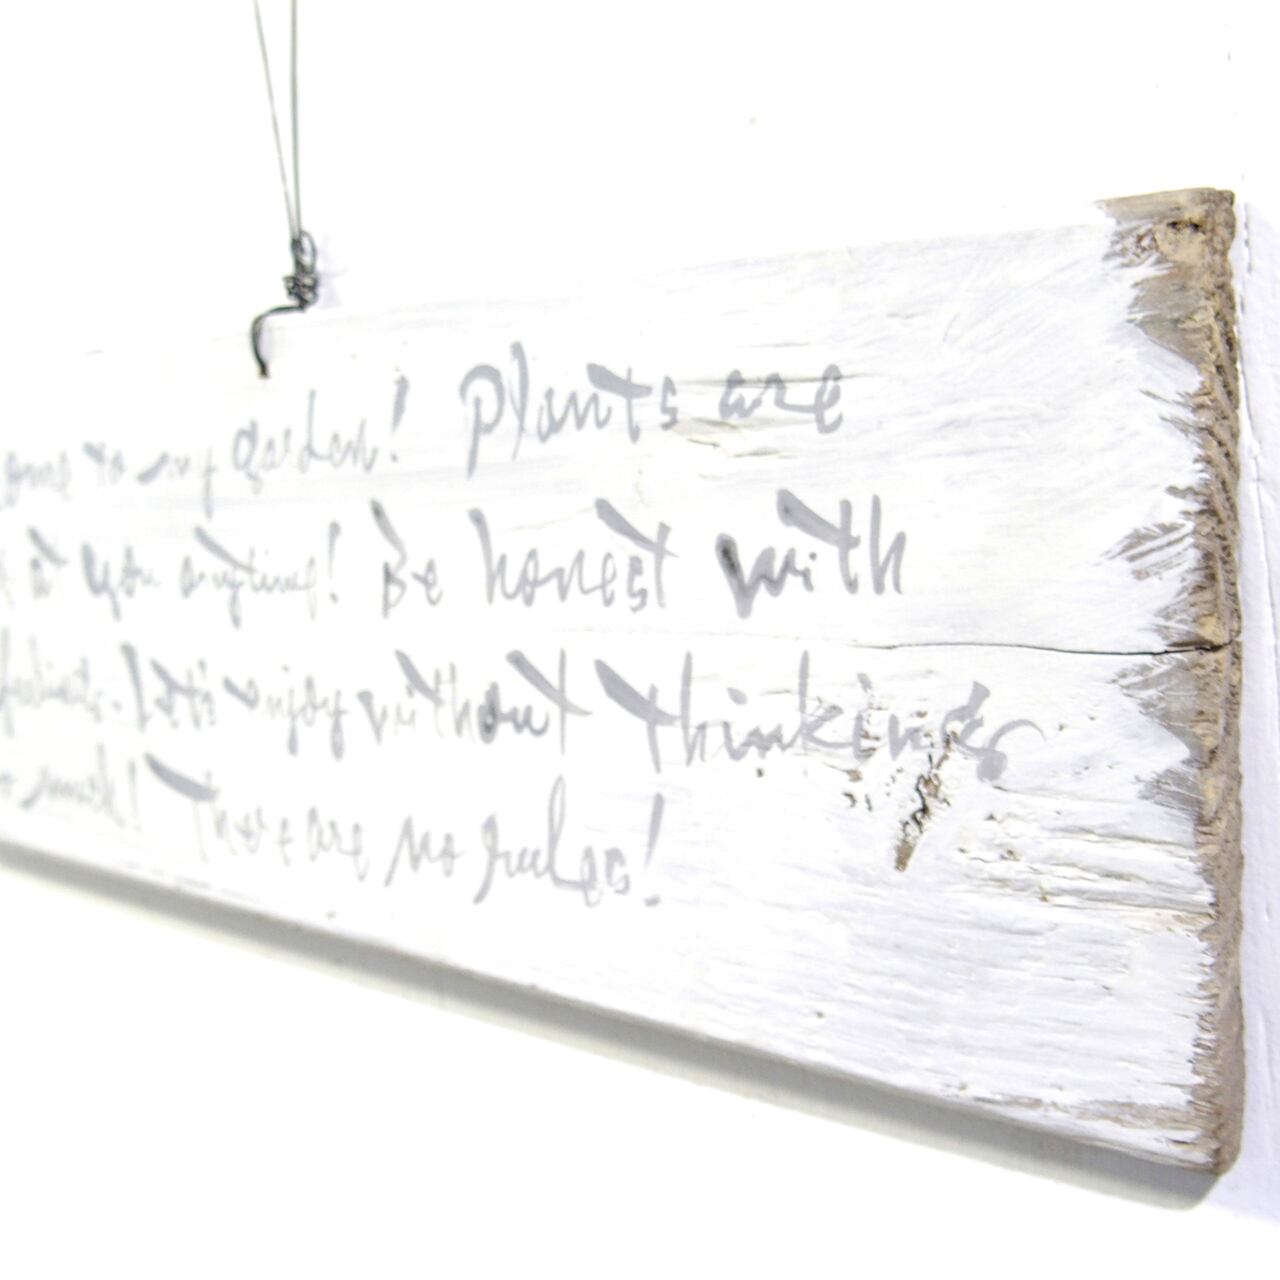 ome to my garden! Plants are
at you anytime! Be honest with
Let's enjoy without thinking
much! There are no rules!